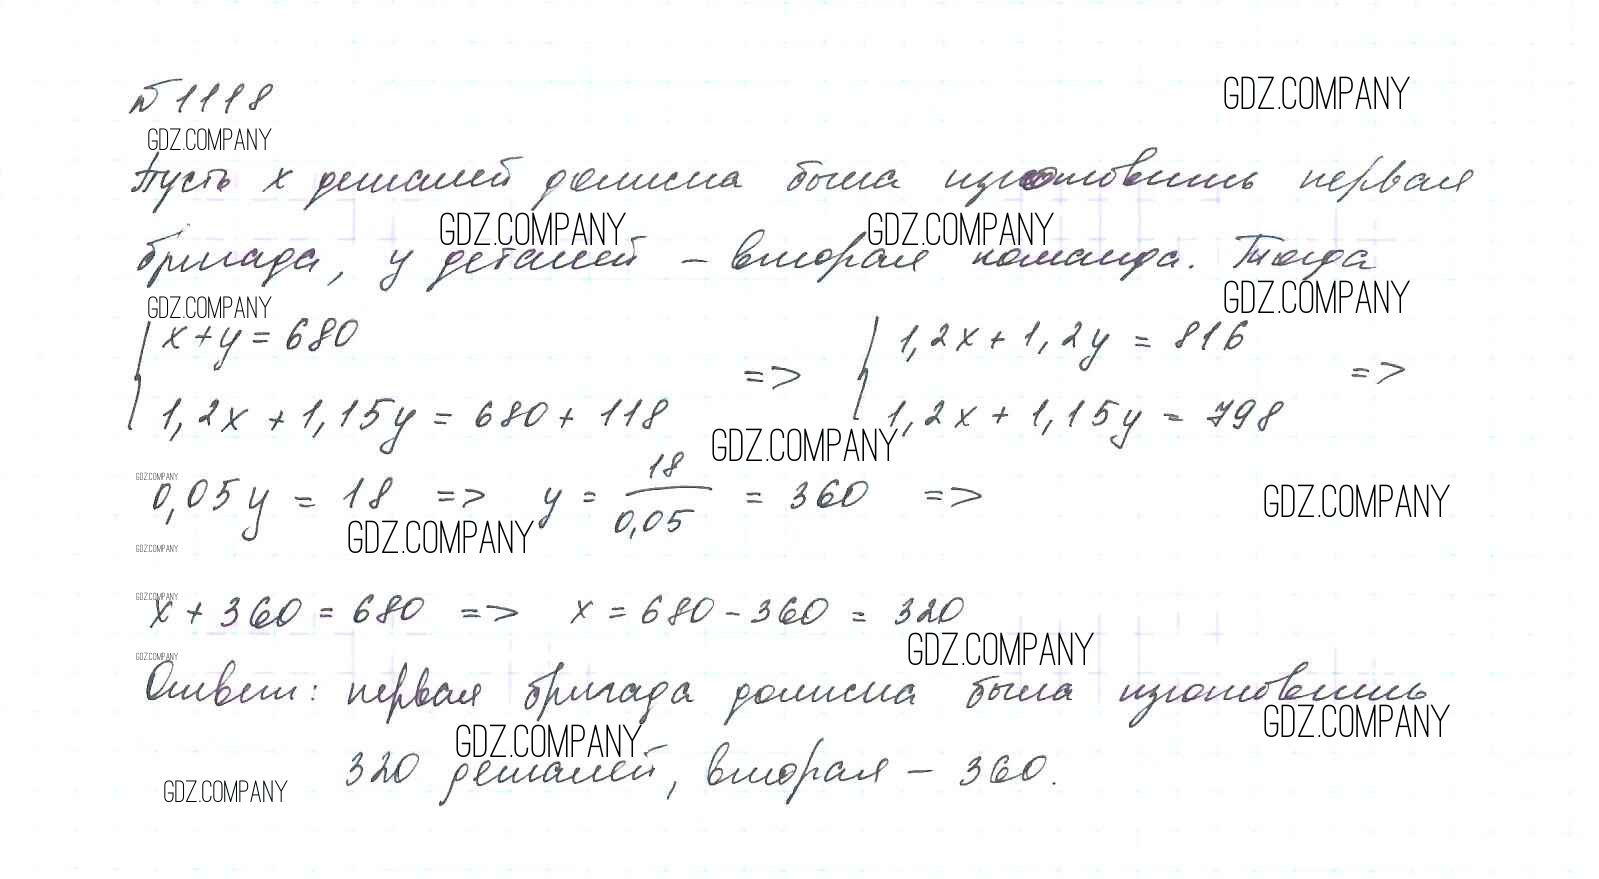 №1118
GDZ.COMPANY
GDZ.COMPANY
Пусть x деталей должна была изготовить первая
GDZ.COMPANY GDZ.COMPANY
бригада, y деталей – вторая команда. Тогда
GDZ.COMPANY GDZ.COMPANY
{ x+y=680 => { 1,2x+1,2y = 816 =>
1,2x+1,15y = 680+118 1,2x+1,15y = 798
GDZ.COMPANY
GDZ.COMPANY
0,05y = 18 => y = 18/0,05 = 360 =>
GDZ.COMPANY
GDZ.COMPANY
GDZ.COMPANY
GDZ.COMPANY
x+360=680 => x=680-360 = 320
GDZ.COMPANY
GDZ.COMPANY
Ответ: первая бригада должна была изготовить
GDZ.COMPANY GDZ.COMPANY
320 деталей, вторая – 360.
GDZ.COMPANY